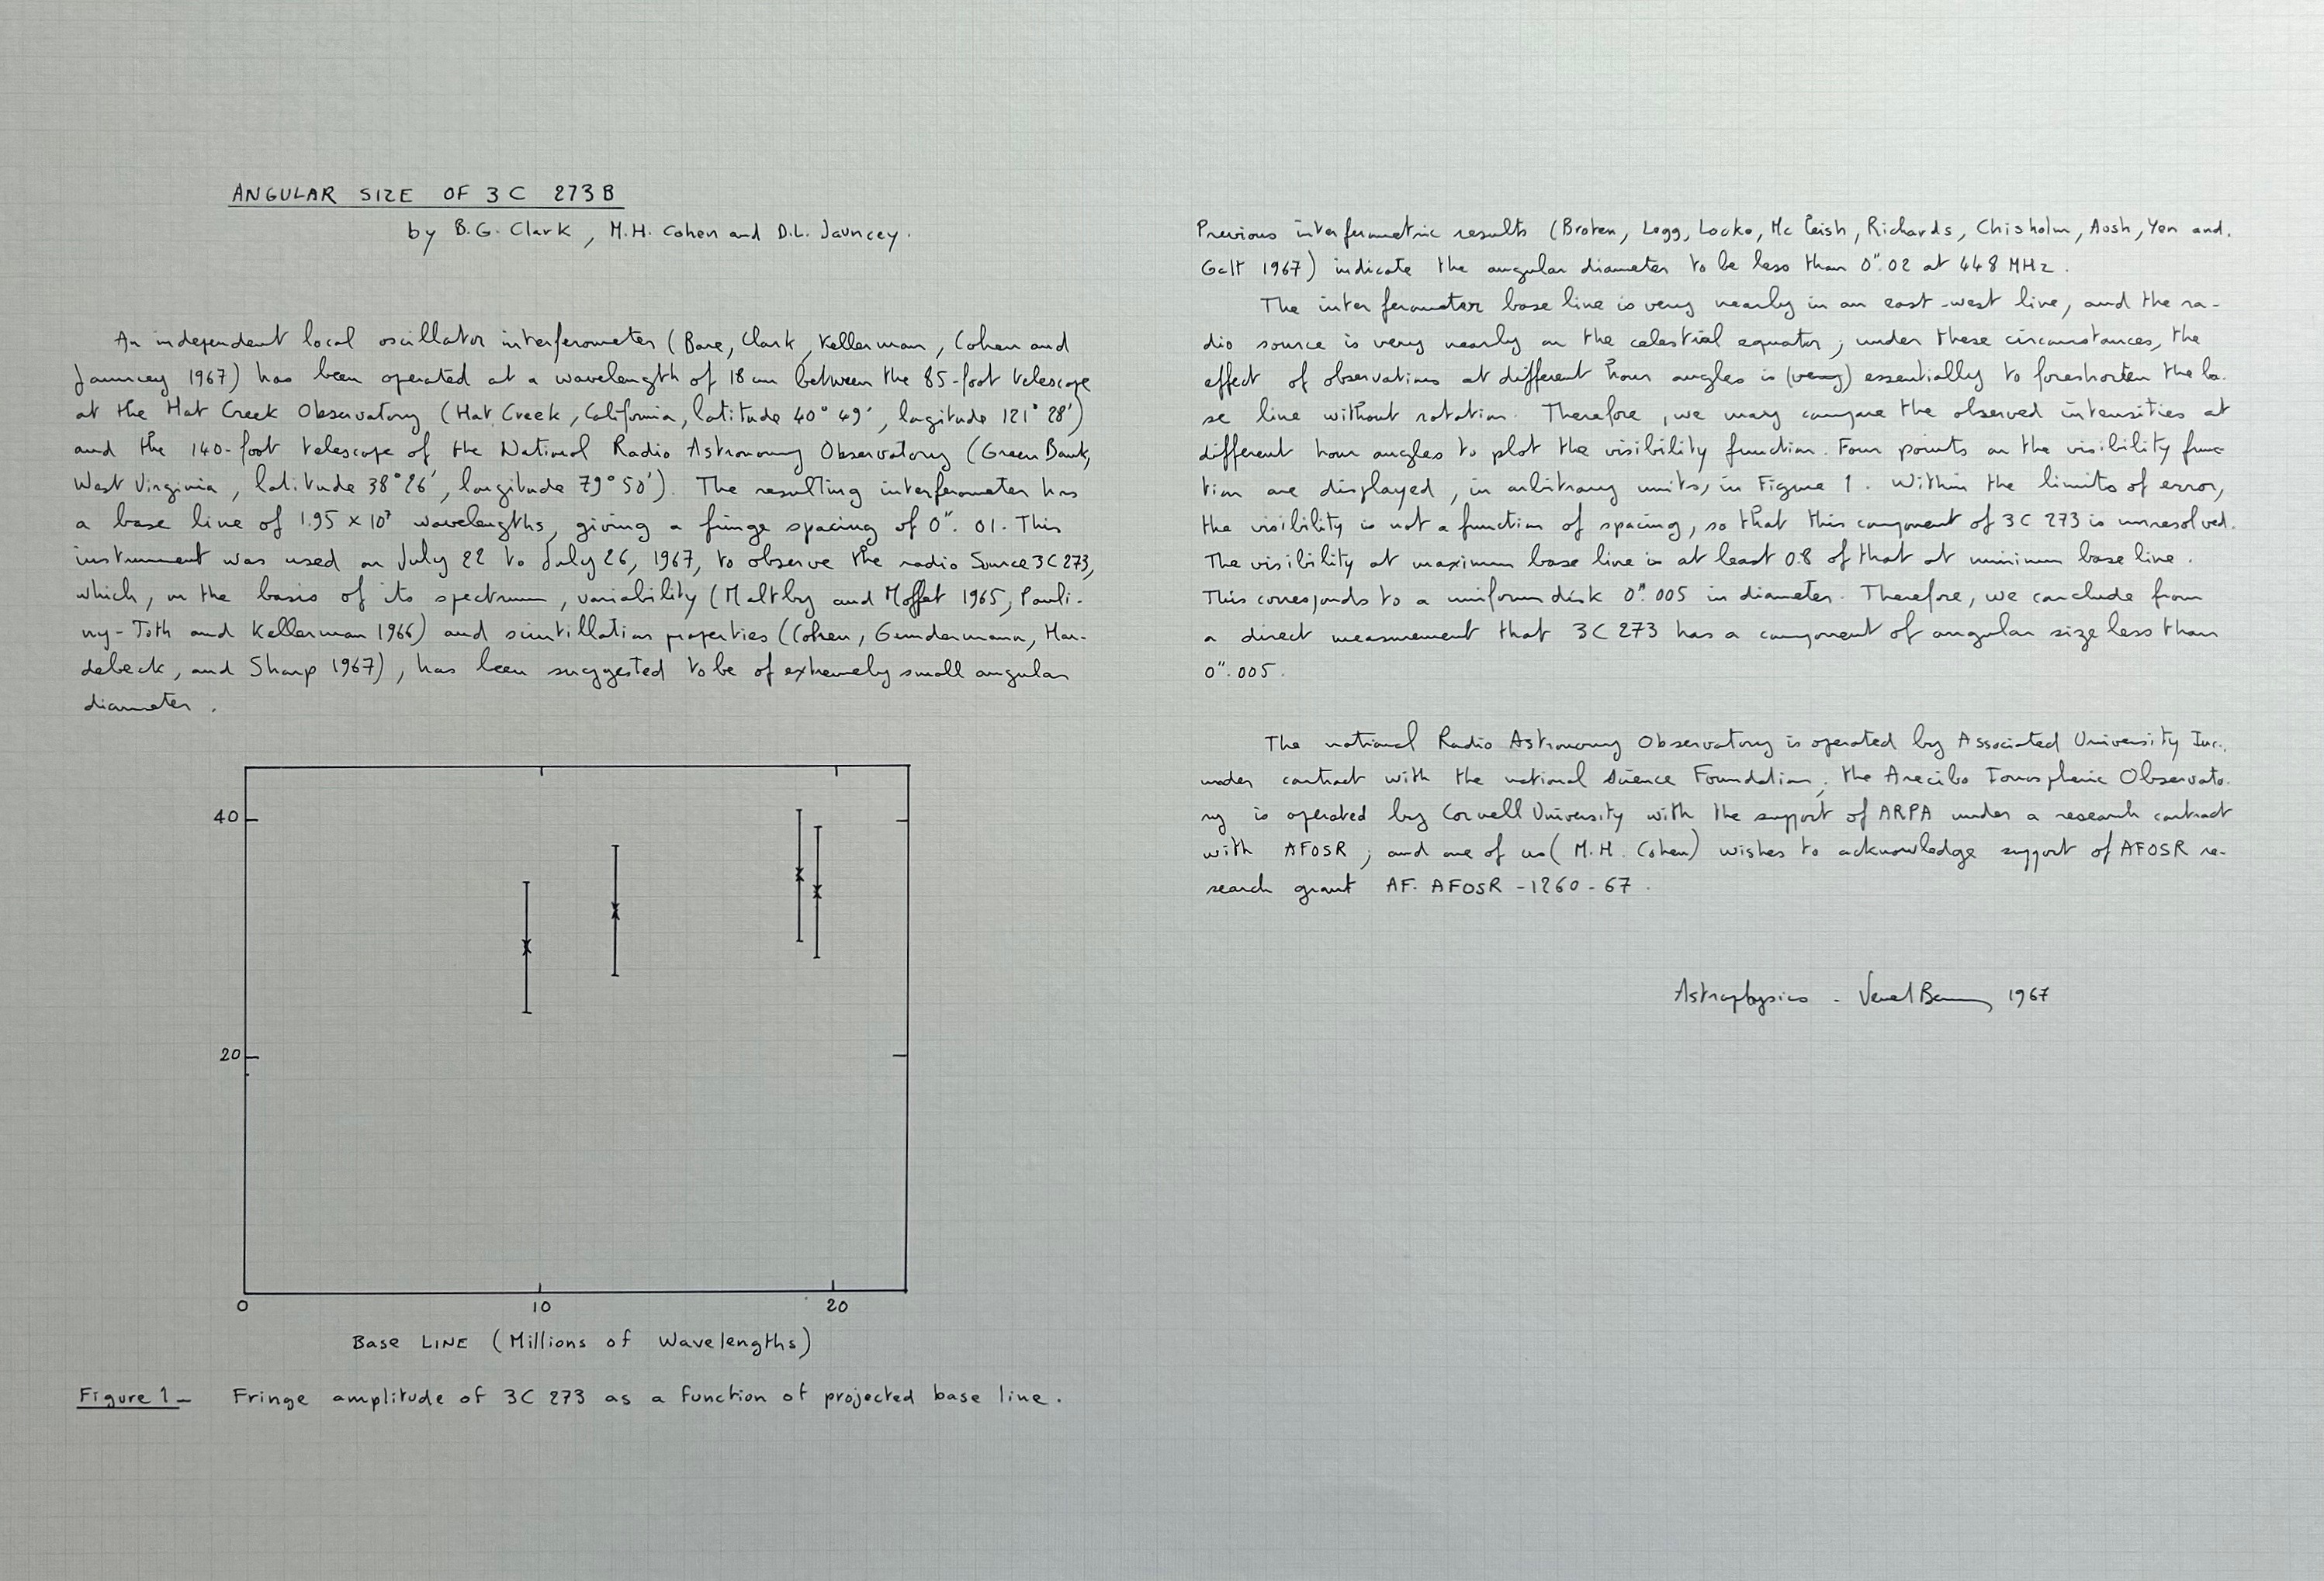 ANGULAR SIZE OF 3C 273B
by B.G. Clark, M.H. Cohen and D.L. Jauncey.
An independent local oscillator interferometer (Bare, Clark, Kellerman, Cohen and
Jauncey 1967) has been operated at a wavelength of 18 cm between the 85-foot telescope
at the Hat Creek Observatory (Hat Creek, California, latitude 40° 49', longitude 121° 28')
and the 140-foot telescope of the National Radio Astronomy Observatory (Green Bank,
West Virginia, latitude 38° 26', longitude 79° 50'). The resulting interferometer has
a base line of 1.95 × 10⁷ wavelengths, giving a fringe spacing of 0". 01. This
instrument was used on July 22 to July 26, 1967, to observe the radio Source 3C 273,
which, on the basis of its spectrum, variability (Maltby and Moffat 1965, Pauli-
ny-Toth and Kellerman 1966) and scintillation properties (Cohen, Gundermann, Har-
debeck, and Sharp 1967), has been suggested to be of extremely small angular
diameter.
40
20
0 10 20
Base LINE (Millions of Wavelengths)
Figure 1 - Fringe amplitude of 3C 273 as a function of projected base line.
Previous interferometric results (Broten, Legg, Locke, Mc Leish, Richards, Chisholm, Aush, Yen and.
Galt 1967) indicate the angular diameter to be less than 0".02 at 448 MHz.
The interferometer base line is very nearly in an east-west line, and the ra-
dio source is very nearly on the celestial equator; under these circumstances, the
effect of observations at different hour angles is (very) essentially to foreshorten the ba-
se line without rotation. Therefore, we may compare the observed intensities at
different hour angles to plot the visibility function. Four points on the visibility func-
tion are displayed, in arbitrary units, in Figure 1. Within the limits of error,
the visibility is not a function of spacing, so that this component of 3C 273 is unresolved.
The visibility at maximum base line is at least 0.8 of that at minimum base line.
This corresponds to a uniform disk 0".005 in diameter. Therefore, we conclude from
a direct measurement that 3C 273 has a component of angular size less than
0".005.
The national Radio Astronomy Observatory is operated by Associated University Inc.,
under contract with the national Science Foundation; the Arecibo Ionospheric Observato-
ry is operated by Cornell University with the support of ARPA under a research contract
with AFOSR; and one of us (M.H. Cohen) wishes to acknowledge support of AFOSR re-
search grant AF- AFOSR - 1260 - 67.
Astrophysics - 1967